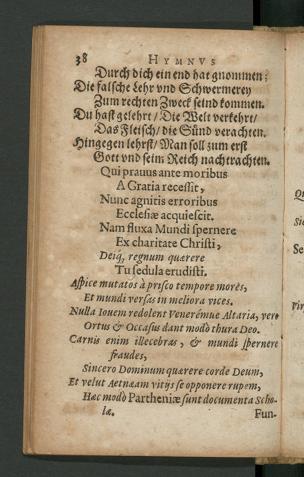 38 HYMNVS
Durch dich ein end hat gnommen:
Die falsche Lehr vnd Schwermerey
Zum rechten Zweck seind kommen.
Du hast gelehrt / Die Welt verkehrt /
Das Fleisch / die Sünd verachten.
Hingegen lehrst / Man soll zum erst
Gott vnd seim Reich nachtrachten.
Qui prauus ante moribus
A Gratia recessit,
Nunc agnitis erroribus
Ecclesiæ acquiescit.
Nam fluxa Mundi spernere
Ex charitate Christi,
Deiq́, regnum quærere
Tu sedula erudisti.
Aspice mutatos à prisco tempore mores,
Et mundi versas in meliora vices.
Nulla Iouem redolent Venerémue Altaria, verò
Ortus & Occasus dant modò thura Deo.
Carnis enim illecebras, & mundi spernere
fraudes,
Sincero Dominum quærere corde Deum,
Et velut Aetnæam vitijs se opponere rupem,
Hæc modò Partheniæ sunt documenta Scho-
læ.
Fun-